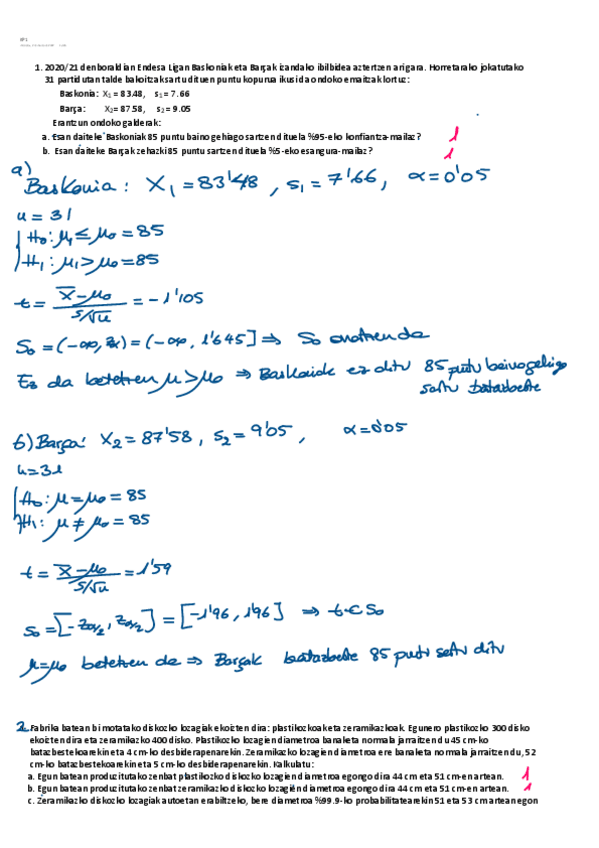 1. 2020/21 denboraldian Endesa Ligan Baskoniak eta Barçak izandako ibilbidea aztertzen ari gara. Horretarako jokatutako
31 partidutan talde bakoitzak sartu dituen puntu kopurua ikusi da ondoko emaitzak lortuz:
Baskonia: X₁ = 83.48, s₁ = 7.66
Barça: X₂ = 87.58, s₂ = 9.05
Erantzun ondoko galderak:
a. Esan daiteke Baskoniak 85 puntu baino gehiago sartzen dituela %95-eko konfiantza-mailaz? 1
b. Esan daiteke Barçak zehazki 85 puntu sartzen dituela %5-eko esangura-mailaz? 1
a)
Baskonia: X₁ = 83'48, s₁ = 7'66, α = 0'05
n = 31
H₀: μ₁ ≤ μ₀ = 85
H₁: μ₁ > μ₀ = 85
t = x̄ - μ₀ / s/√n = -1'105
S₀ = (-∞, zα) = (-∞, 1'645] ⇒ S₀ onartzen da
Ez da betetzen μ > μ₀ ⇒ Baskoniak ez ditu 85 puntu baino gehiago
sartu batazbeste
b) Barça: X₂ = 87'58, s₂ = 9'05, α = 0'05
n = 31
H₀: μ = μ₀ = 85
H₁: μ ≠ μ₀ = 85
t = x̄ - μ₀ / s/√n = 1'59
S₀ = [-zα/2, zα/2] = [-1'96, 1'96] ⇒ t ∈ S₀
μ = μ₀ betetzen da ⇒ Barçak batazbeste 85 puntu sartu ditu
2. Fabrika batean bi motatako diskozko lozagiak ekoizten dira: plastikozkoak eta zeramikazkoak. Egunero plastikozko 300 disko
ekoizten dira eta zeramikazko 400 disko. Plastikozko lozagien diametroa banaketa normala jarraitzen du 45 cm-ko
batazbestekoarekin eta 4 cm-ko desbiderapenarekin. Zeramikazko lozagien diametroa ere banaketa normala jarraitzen du, 52
cm-ko batazbestekoarekin eta 5 cm-ko desbiderapenarekin. Kalkulatu:
a. Egun batean produzitutako zenbat plastikozko diskozko lozagien diametroa egongo dira 44 cm eta 51 cm-en artean. 1
b. Egun batean produzitutako zenbat zeramikazko diskozko lozagien diametroa egongo dira 44 cm eta 51 cm-en artean. 1
c. Zeramikazko diskozko lozagiak autoetan erabiltzeko, bere diametroa %99.9-ko probabilitatearekin 51 eta 53 cm artean egon